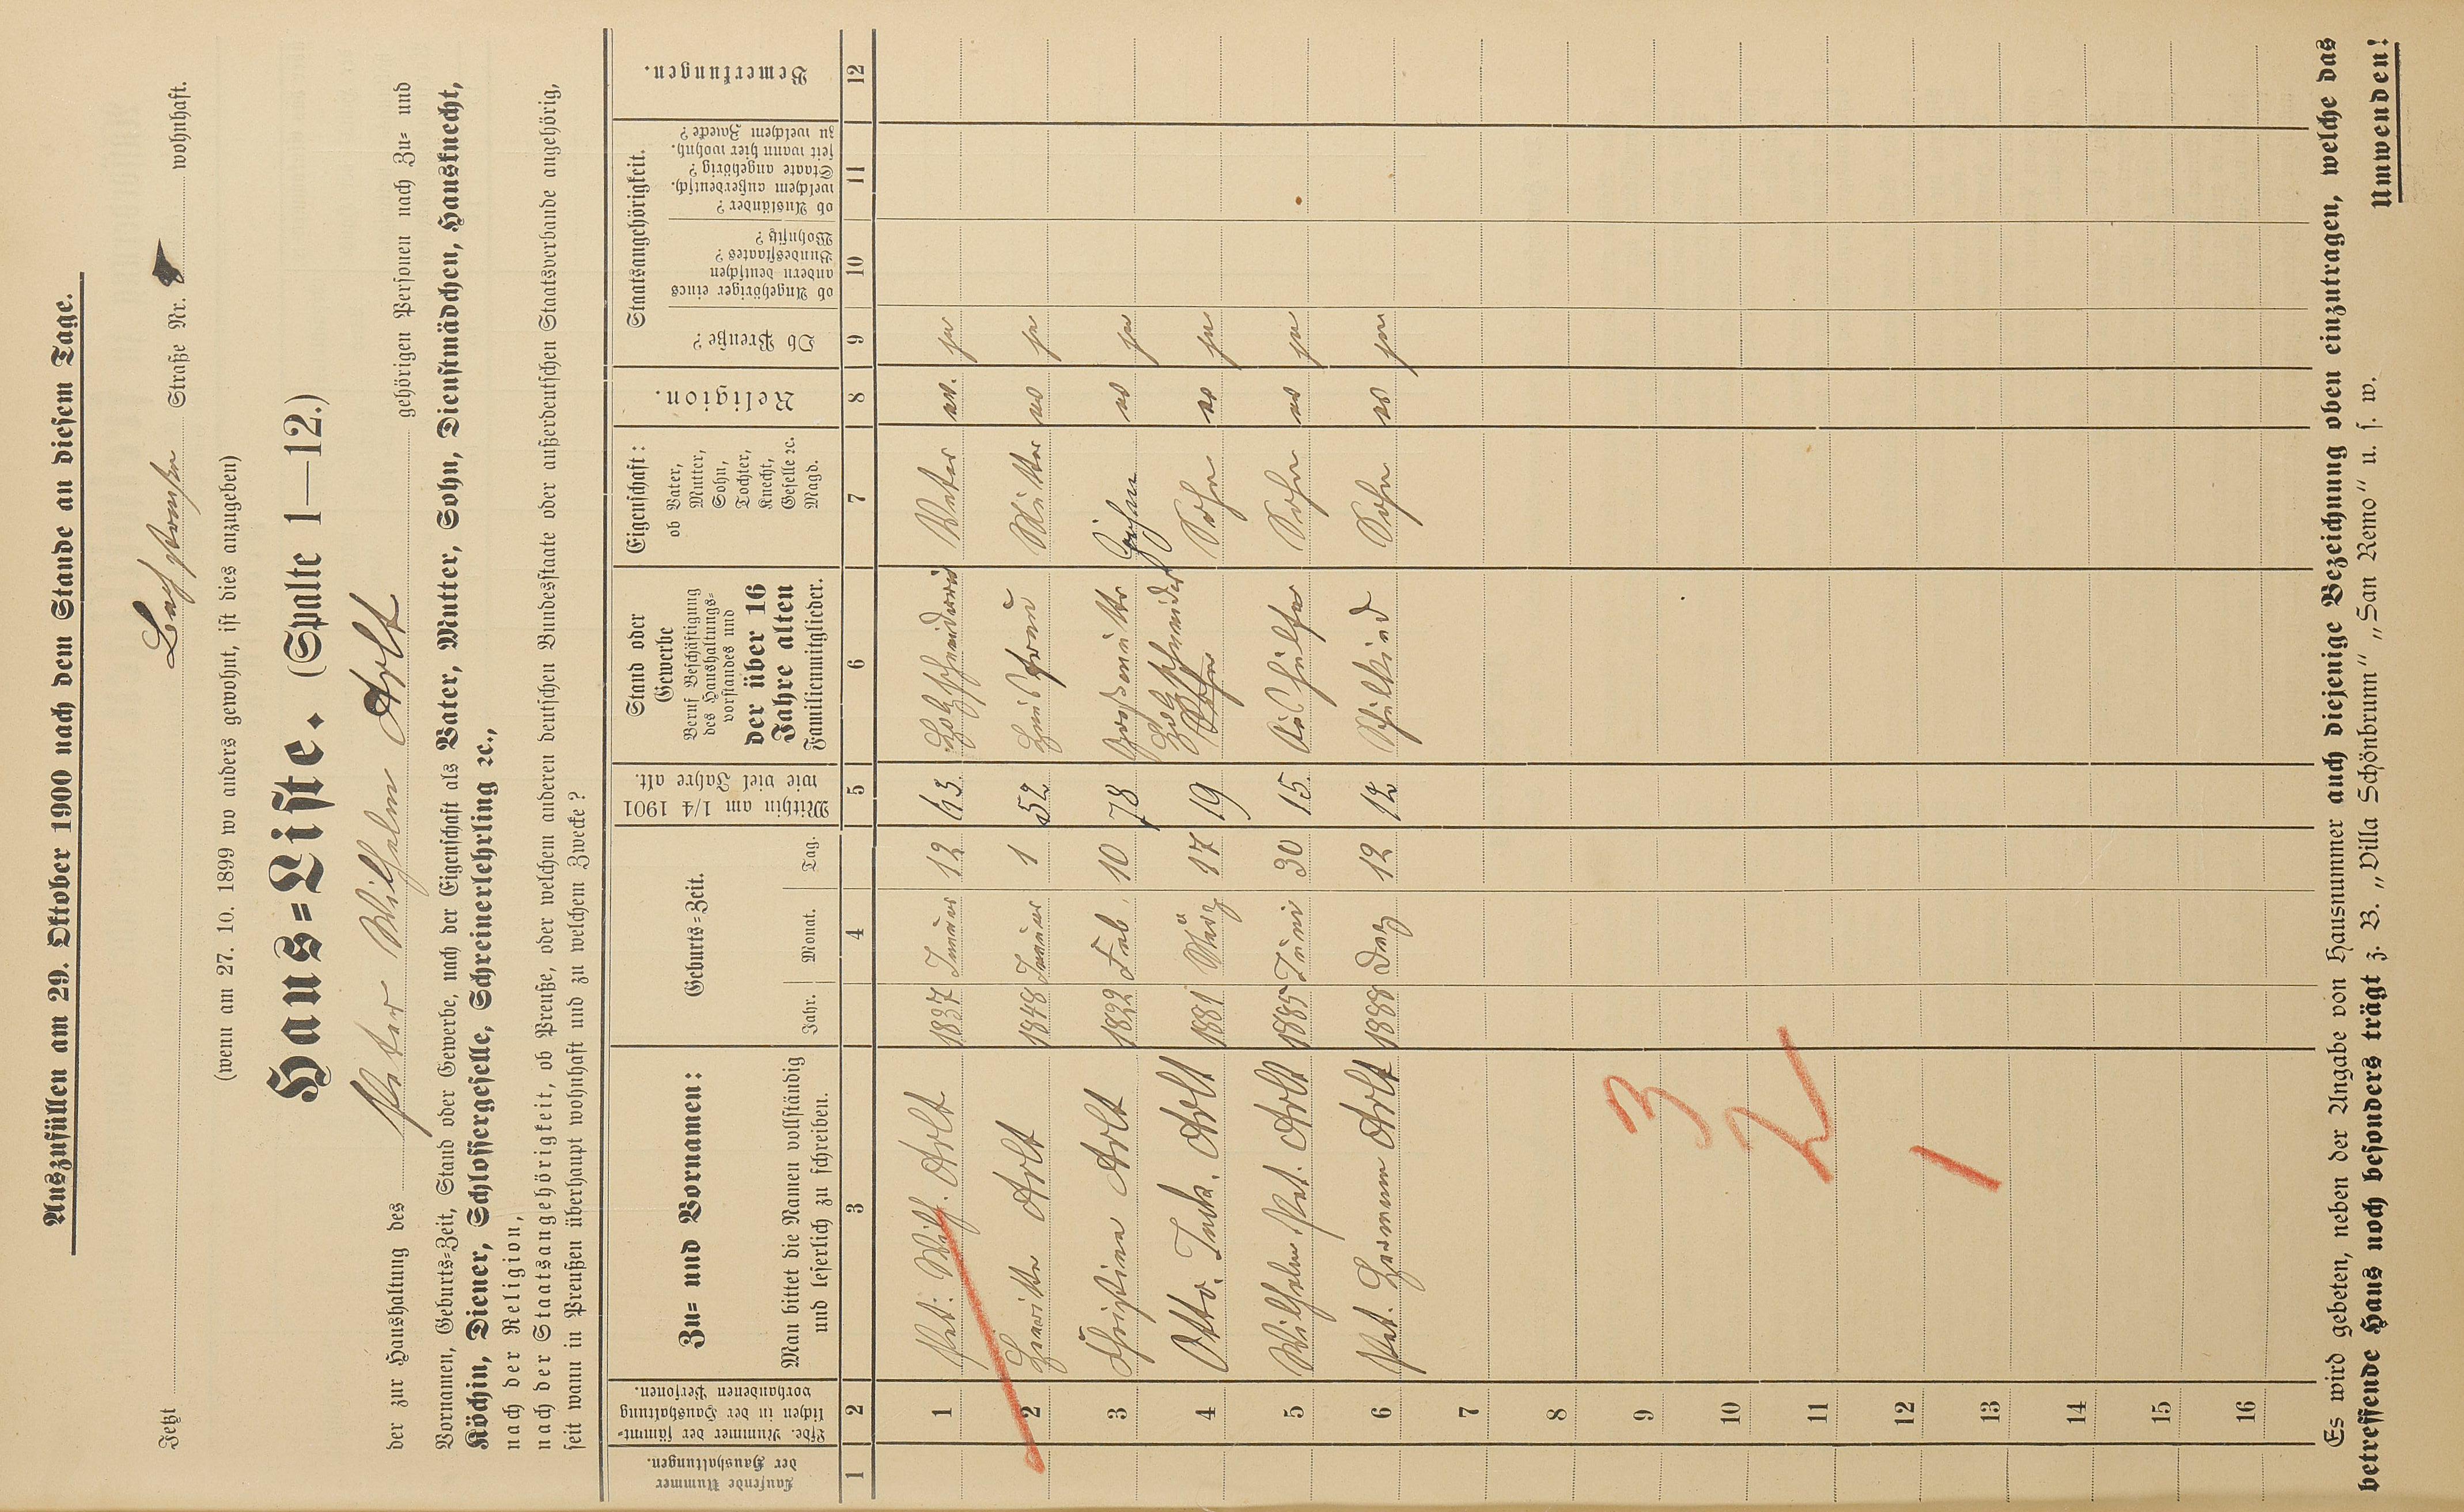 Auszufüllen am 29. Oktober 1900 nach dem Stande an diesem Tage.
Jetzt Bachstrasse Straße Nr. wohnhaft.
(wenn am 27. 10. 1899 wo anders gewohnt, ist dies anzugeben)
Haus=Liste. (Spalte 1—12.)
der zur Haushaltung des Peter Wilhelm Arlt gehörigen Personen nach Zu= und
Vornamen, Geburts=Zeit, Stand oder Gewerbe, nach der Eigenschaft als Vater, Mutter, Sohn, Dienstmädchen, Hausknecht,
Köchin, Diener, Schlossergeselle, Schreinerlehrling ꝛc.,
nach der Religion,
nach der Staatsangehörigkeit, ob Preuße, oder welchem anderen deutschen Bundesstaate oder außerdeutschen Staatsverbande angehörig,
seit wann in Preußen überhaupt wohnhaft und zu welchem Zwecke?
Laufende Nummer der Haushaltungen.
Lfde. Nummer der sämmt=
lichen in der Haushaltung
vorhandenen Personen.
Zu= und Vornamen:
Man bittet die Namen vollständig
und leserlich zu schreiben.
Geburts=Zeit.
Jahr. Monat. Tag.
Mithin am 1/4 1901
wie viel Jahre alt.
Stand oder
Gewerbe
Beruf Beschäftigung
des Haushaltungs=
vorstandes und
der über 16
Jahre alten
Familienmitglieder.
Eigenschaft:
ob Vater,
Mutter,
Sohn,
Tochter,
Knecht,
Geselle ꝛc.
Magd.
Religion.
Staatsangehörigkeit.
Ob Preuße?
ob Angehöriger eines
andern deutschen
Bundesstaates?
Wohnsitz?
ob Ausländer?
welchem außerdeutsch.
Staate angehörig?
seit wann hier wohnh.
zu welchem Zwecke?
Bemerkungen.
1 2 3 4 5 6 7 8 9 10 11 12
1 Pet. Wilh. Arlt 1837 Januar 12 63. Vater ev. ja
2 Arlt 1848 Januar 1 52 Hausfrau Mutter ev ja
3 Christine Arlt 1822 Feb. 10 78 Großmutter ev ja
4 Otto. Arlt 1881 März 17 19 Holzschneider Sohn ev ja
5 Wilhelm. Pet. Arlt 1885 Juni 30 15. Sohn ev ja
6 Pet. Hermann Arlt 1888 Dez 12 12 Schulkind Sohn ev ja
7
8
9
3
10
2
11
12
1
13
14
15
16
Es wird gebeten, neben der Angabe von Hausnummer auch diejenige Bezeichnung oben einzutragen, welche das
betreffende Haus noch besonders trägt z. B. „Villa Schönbrunn“ „San Remo“ u. s. w.
Umwenden!